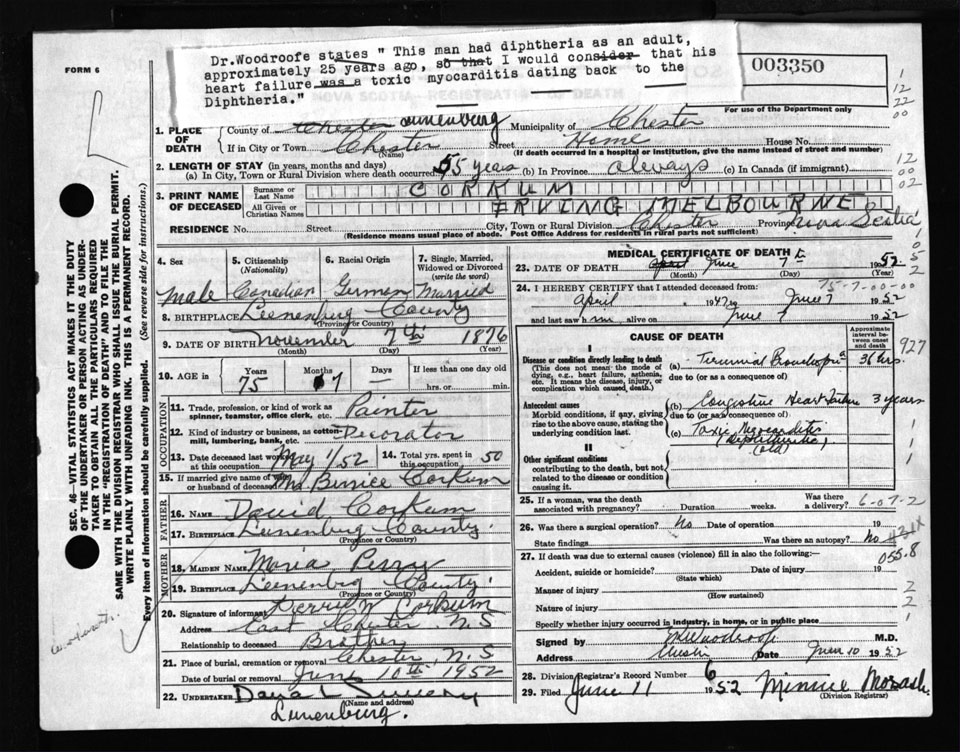 Dr.Woodroofe states " This man had diphtheria as an adult,
approximately 25 years ago, so that I would consider that his
heart failure was a toxic myocarditis dating back to the
Diphtheria."
FORM 6
NOVA SCOTIA REGISTRATION OF DEATH
003350
For use of the Department only
1. PLACE OF DEATH
County of Chester Lunenburg Municipality of Chester
If in City or Town Chester Street Home House No.
(Name) (If death occurred in a hospital or institution, give the name instead of street and number)
2. LENGTH OF STAY (in years, months and days)
(a) In City, Town or Rural Division where death occurred 55 years (b) In Province always (c) In Canada (if immigrant)
3. PRINT NAME OF DECEASED
Surname or Last Name CORKUM
All Given or Christian Names ERVING MELBOURNE
RESIDENCE No. Street City, Town or Rural Division Chester Province Nova Scotia
(Residence means usual place of abode. Post Office Address for residents in rural parts not sufficient)
4. Sex male
5. Citizenship (Nationality) Canadian
6. Racial Origin German
7. Single, Married, Widowed or Divorced (write the word) Married
8. BIRTHPLACE Lunenburg County
(Province or Country)
9. DATE OF BIRTH November 7th 1876
(Month) (Day) (Year)
10. AGE in Years 75 Months 7 Days — If less than one day old
hrs. or min.
OCCUPATION
11. Trade, profession, or kind of work as spinner, teamster, office clerk, etc. Painter
12. Kind of industry or business, as cotton-mill, lumbering, bank, etc. Decorator
13. Date deceased last worked at this occupation May 1/52 14. Total yrs. spent in this occupation 50
15. If married give name of wife or husband of deceased Mrs Bernice Corkum
FATHER
16. NAME David Corkum
17. BIRTHPLACE Lunenburg County
(Province or Country)
MOTHER
18. MAIDEN NAME Maria Perry
19. BIRTHPLACE Lunenburg County
(Province or Country)
20. Signature of informant W Corkum
Address East Chester N.S
Relationship to deceased Brother
21. Place of burial, cremation or removal Chester, N.S
Date of burial or removal June 10th 1952
22. UNDERTAKER
(Name and address)
Lunenburg.
MEDICAL CERTIFICATE OF DEATH
23. DATE OF DEATH June 7th 1952
(Month) (Day) (Year)
75-7-00-00
24. I HEREBY CERTIFY that I attended deceased from:
April 1947 to June 7 1952
and last saw him alive on June 7 1952
CAUSE OF DEATH
Approximate interval between onset and death
I
Disease or condition directly leading to death
(This does not mean the mode of dying, e.g., heart failure, asthenia, etc. It means the disease, injury, or complication which caused death.)
(a) Terminal 36 hrs.
due to (or as a consequence of)
Antecedent causes
Morbid conditions, if any, giving rise to the above cause, stating the underlying condition last.
(b) Congestive Heart Failure 3 years
due to (or as a consequence of)
(c) Toxic Myocarditis
(Diphtheritic)
(old)
927
II
Other significant conditions
contributing to the death, but not related to the disease or condition causing it.
25. If a woman, was the death associated with pregnancy? Duration weeks. Was there a delivery?
6-07-2
26. Was there surgical operation? No Date of operation 19
State findings Was there an autopsy? No
27. If death was due to external causes (violence) fill in also the following:—
055.8
Accident, suicide or homicide? Date of injury 19
(State which)
Manner of injury
(How sustained)
Nature of injury
Specify whether injury occurred in industry, in home, or in public place
Signed by M.D.
Address Chester Date June 10 1952
28. Division Registrar's Record Number 6
29. Filed June 11 1952 Minnie
(Division Registrar)
SEC. 46—VITAL STATISTICS ACT MAKES IT THE DUTY
OF THE UNDERTAKER OR PERSON ACTING AS UNDERTAKER
TO OBTAIN ALL THE PARTICULARS REQUIRED
IN THE "REGISTRATION OF DEATH" AND TO FILE THE
SAME WITH THE DIVISION REGISTRAR WHO SHALL ISSUE THE BURIAL PERMIT.
WRITE PLAINLY WITH UNFADING INK. THIS IS A PERMANENT RECORD.
Every item of information should be carefully supplied. (See reverse side for instructions.)